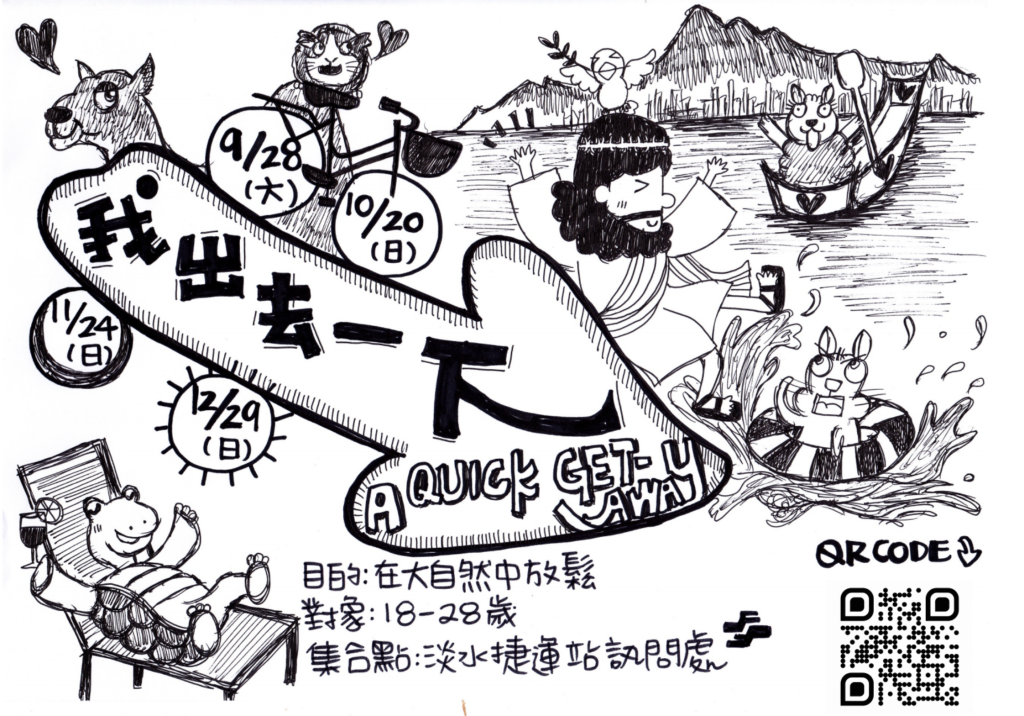 9/28
(六)
10/20
(日)
我出去一下
11/24
(日)
12/29
(日)
A QUICK GET-
AWAY
QR CODE
目的:在大自然中放鬆
對象:18-28歲
集合點:淡水捷運站訊問處